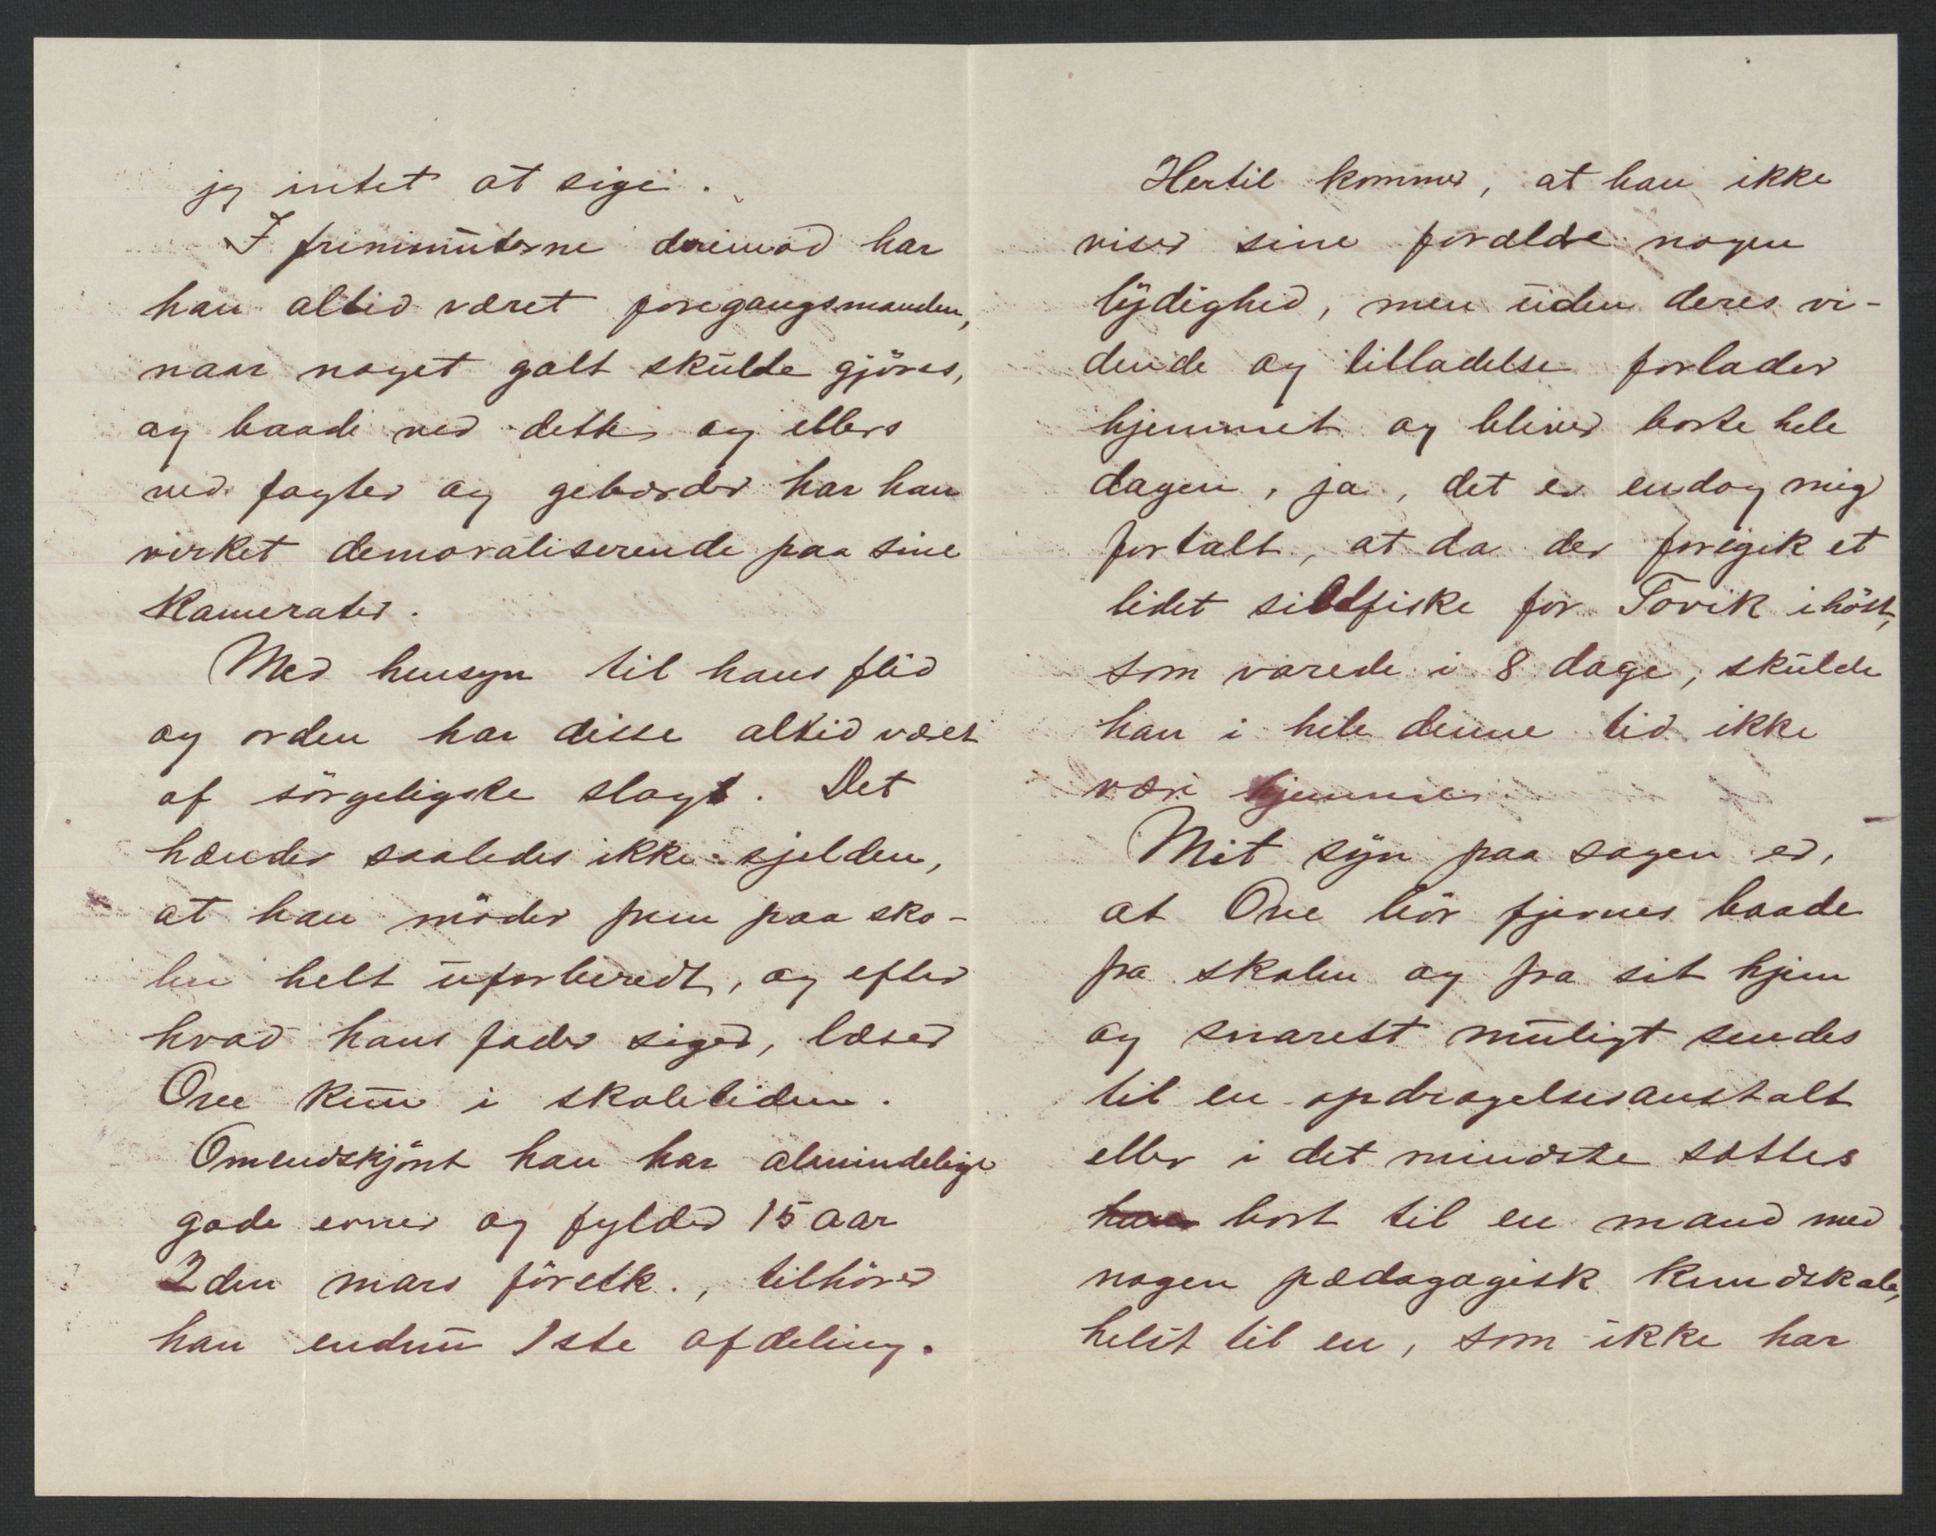 jeg intet at sige.
I friminuterne derimod har
han altid været foregangsmanden,
naar noget galt skulde gjöres,
og baade ved dette og ellers
ved fagter og gebærder har han
virket demoraliserende paa sine
kamerater.
Med hensyn til hans flid
og orden har disse altid været
af sörgeligste slags. Det
hænder saaledes ikke sjelden,
at han möder frem paa sko-
len helt uforberedt, og efter
hvad hans fader siger, læser
Ove kun i skoletiden.
Omendskjönt han har almindelige
gode evner og fylder 15 aar
2den mars förstk., tilhörer
han endnu 1ste afdeling.
Hertil kommer, at han ikke
viser sine forældre nogen
lydighed, men uden deres vi-
dende og tilladelse forlader
hjemmet og bliver borte hele
dagen, ja, det er endog mig
fortalt, at da der foregik et
lidet sildfiske for Tovik i höst,
som varede i 8 dage, skulde
han i hele denne tid ikke
være hjemme.
Mit syn paa sagen er,
at Ove bör fjernes baade
fra skolen og fra sit hjem
og snarest muligt sendes
til en opdragelsesanstalt
eller i det mindste sættes
bort til en mand med
nogen pædagogisk kundskab,
helst til en, som ikke har